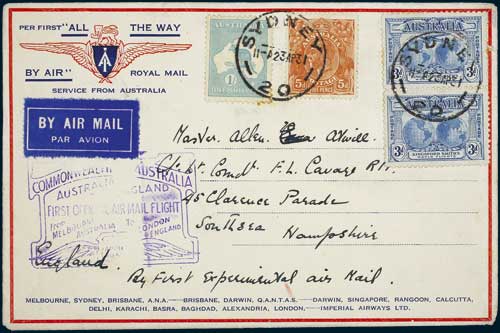 PER FIRST "ALL THE WAY
BY AIR" ROYAL MAIL
SERVICE FROM AUSTRALIA
BY AIR MAIL
PAR AVION
COMMONWEALTH AUSTRALIA
AUSTRALIA ENGLAND
FIRST OFFICIAL AIR MAIL FLIGHT
FROM TO
MELBOURNE LONDON
AUSTRALIA ENGLAND
SYDNEY
23AP31
20
AUSTRALIA
3d 3d
SYDNEY
AUSTRALIA
3d 3d
KINGSFORD SMITH'S
Master Allen Atwill
C/o Lt. Comdr F.L. Cavage R.N.
45 Clarence Parade
Southsea
Hampshire
England.
By First Experimental Air Mail.
MELBOURNE, SYDNEY, BRISBANE, A.N.A.—BRISBANE, DARWIN, Q.A.N.T.A.S.—DARWIN, SINGAPORE, RANGOON, CALCUTTA,
DELHI, KARACHI, BASRA, BAGHDAD, ALEXANDRIA, LONDON,—IMPERIAL AIRWAYS LTD.